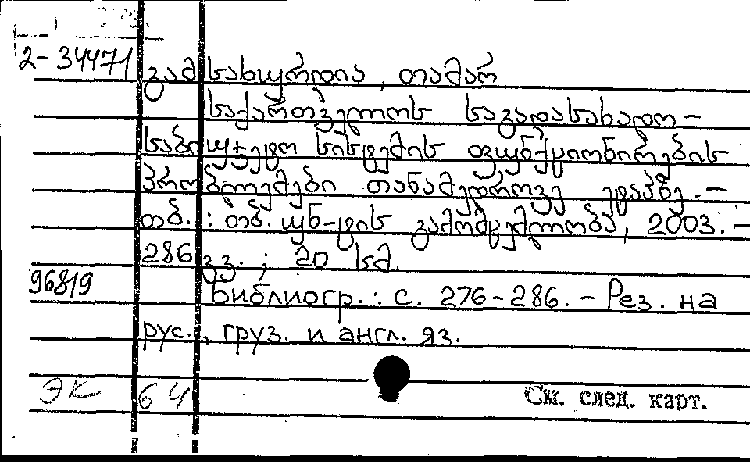 2-34471 გამსახურდია, თამარ
საქართველოს საგადასახადო-
საბიუჯეტო სისტემის ფუნქციონირების
პრობლემები თანამედროვე ეტაპზე. –
თბ. : თბ. უნ-ტის გამომცემლობა, 2003. –
286 გვ. ; 20 სმ.
96819 Библиогр.: с. 276-286. – Рез. на
рус., груз. и англ. яз.
ЭК 64 См. след. карт.